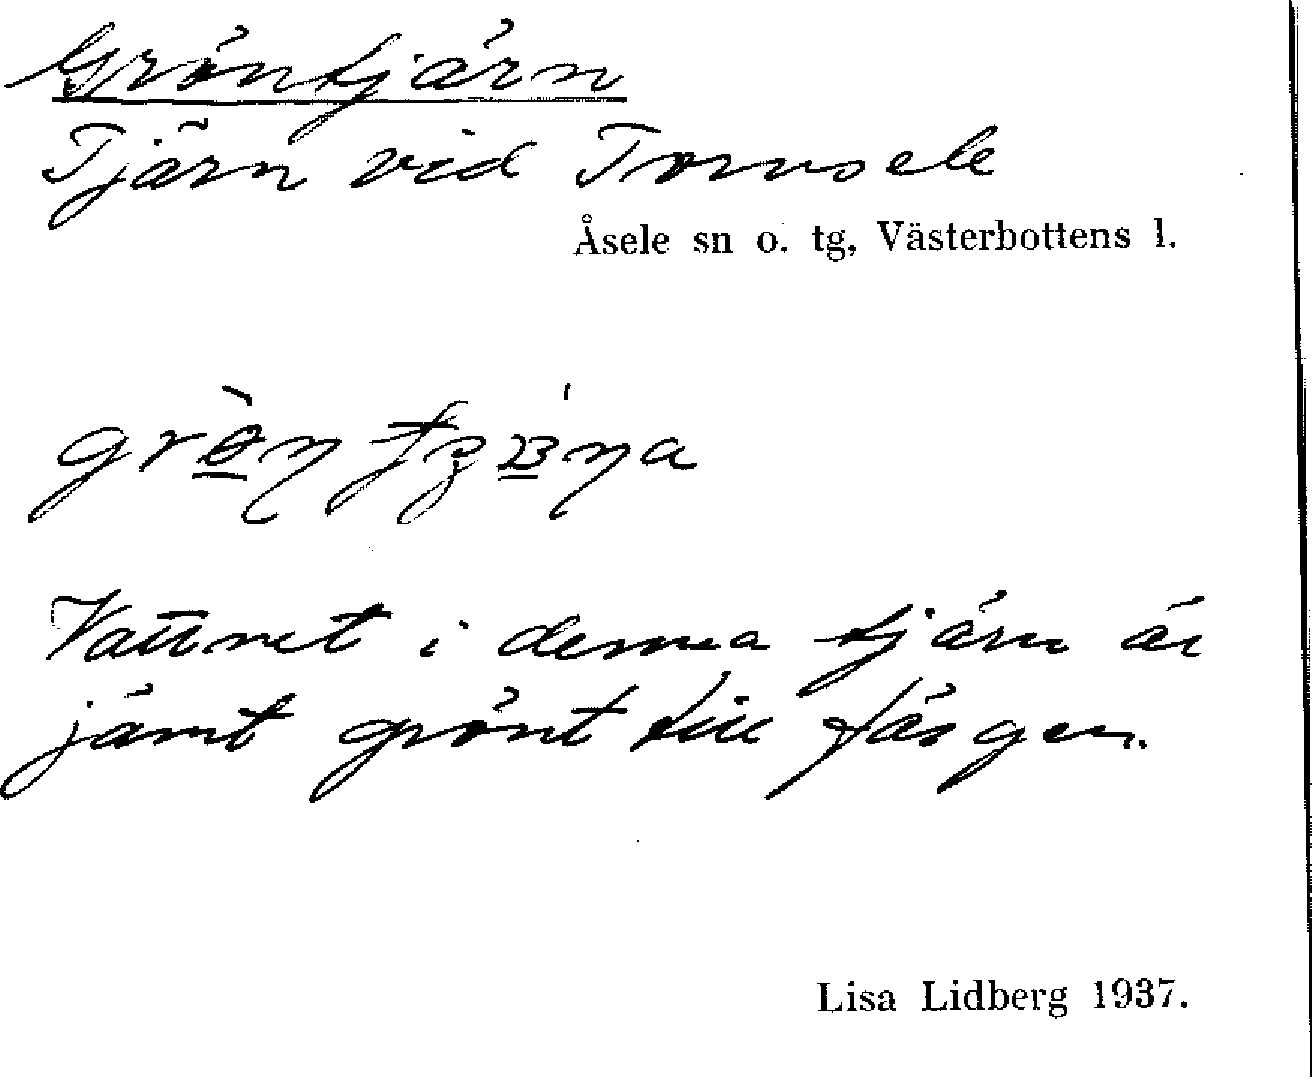 Gröntjärn
Tjärn vid Tornsele
Åsele sn o. tg, Västerbottens l.
Vattnet i denna tjärn är
jämt grönt till färgen.
Lisa Lidberg 1937.